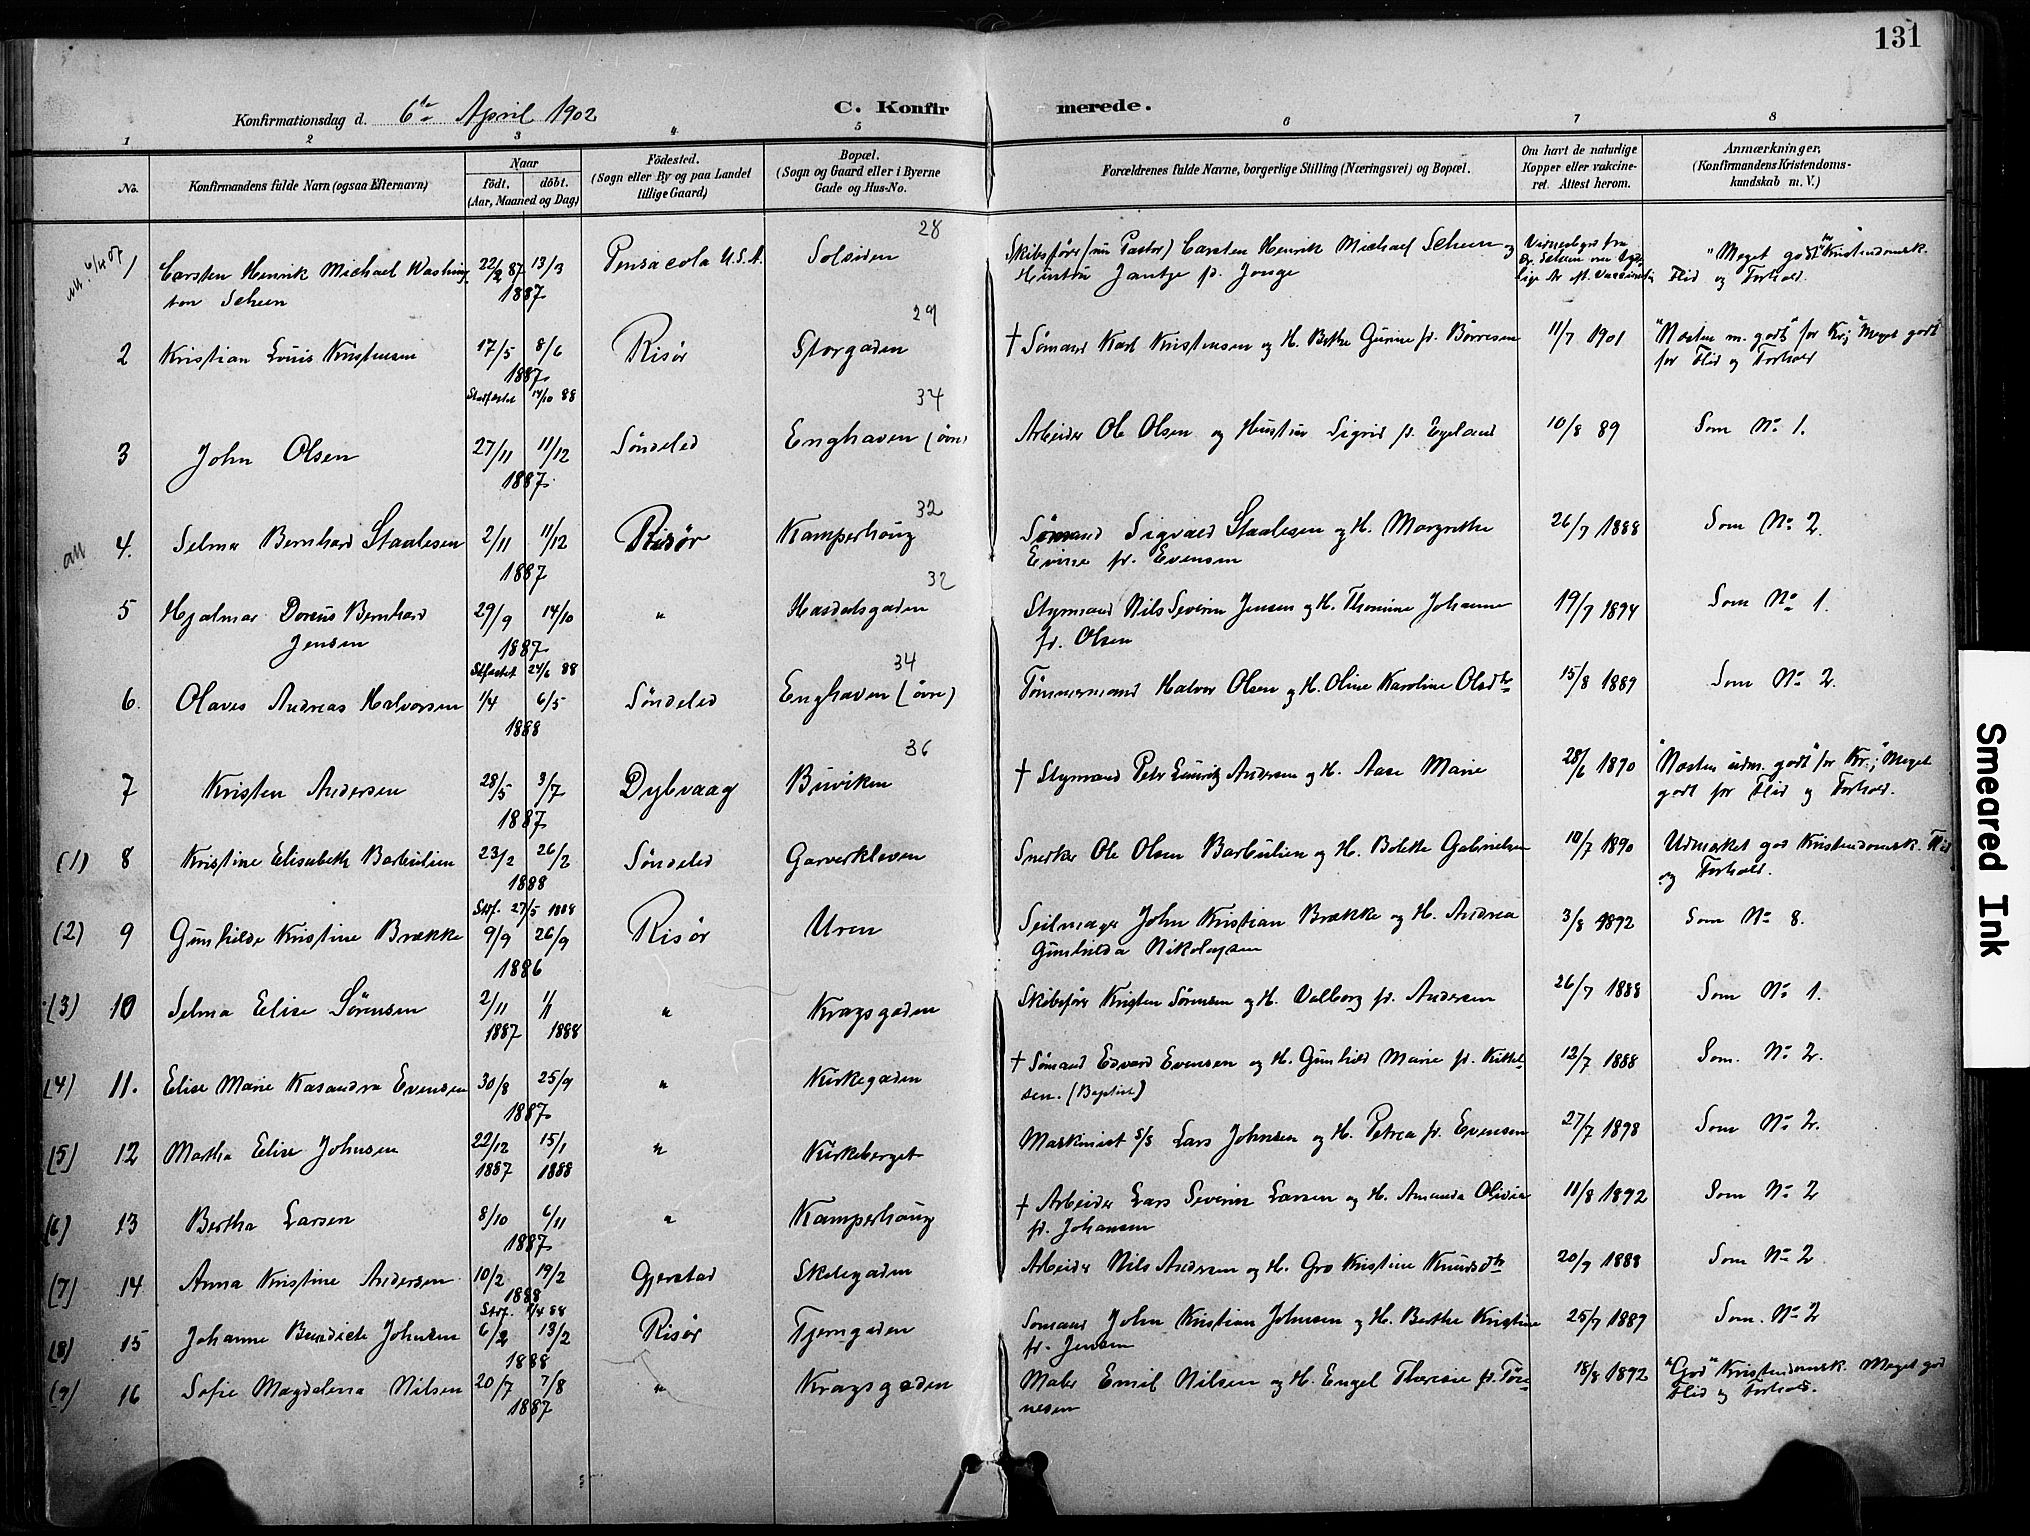 131
Konfirmationsdag d. 6te April 1902
C. Konfirmerede.
1 2 3 4 5 6 7 8
No. Konfirmandens fulde Navn (ogsaa Efternavn) Naar födt. döbt. (Aar, Maaned og Dag) Födested. (Sogn eller By og paa Landet tillige Gaard) Bopæl. (Sogn og Gaard eller i Byerne Gade og Hus-No. Forældrenes fulde Navne, borgerlige Stilling (Næringsvei) og Bopæl. Om havt de naturlige Kopper eller vakcineret. Attest herom. Anmærkninger, (Konfirmandens Kristendomskundskab m. V.)
28
1 Carsten Henrik Michael Washing- 22/2 87 13/3 Pensacola U.S.A. Solsiden Skibsfører (nu Pastor) Carsten Henrik Michael Scheen og "Meget godt" Kristendomsk.
ton Scheen 1887 Hustru Jantje f. Jonge Flid og Forhold.
29
2 Kristian Louis Kristensen 17/5 8/6 Risør Storgaden † Sømand Karl Kristensen og H. Berthe Gurine f. Børresen 11/7 1901 "Næsten m. godt" for Kr; "Meget godt"
1887. for Flid og Forhold
Stadfæstet 14/10 88 34
3 John Olsen 27/11 11/12 Søndeled Enghaven (øvre) Arbeider Ole Olsen og Hustru Sigrid f. Egeland 10/8 89 Som No 1.
1887.
32
4. Selma Bernhard Staalesen 2/11 11/12 Risør Kamperhoug Sømand Sigvald Staalesen og H. Margrethe 26/7 1888 Som No 2.
1887 Evine f. Evensen
32
5 Hjalmar Doreus Bernhard 29/9 14/10 " Hasdalsgaden Styrmand Nils Severin Jensen og H. Thomine Johanne 19/7 1894 Som No 1.
Jensen 1887 f. Olsen
Stfæstet 24/6 88 34
6. Olaves Andreas Halvorsen 1/4 6/5 Søndeled Enghaven (øvre) Tømmermand Halvor Olsen og H. Oline Karoline Olsdtr 15/8 1889 Som No 2.
1888
36
7 Kristen Andersen 28/5 3/7 Dybvaag Buviken † Styrmand Peter Lauritz Andersen og H. Aase Marie 28/6 1890 "Næsten udm. godt" for Kr.; Meget
1887 godt for Flid og Forhold.
(1) 8 Kristine Elisabeth Barbulien 23/2 26/2 Søndeled Garverkleven Snerker Ole Olsen Barbulien og H. Bolette Gabrielsen 10/7 1890 Udmærket god Kristendomsk. Flid
1888 og Forhold.
Stf. 27/5 1888
(2) 9 Gunhilde Kristine Brække 9/9 26/9 Risør Uren Seilmager John Kristian Brække og H. Andrea 3/8 1892 Som No 8.
1886 Gunhilda Nikolaysen
(3) 10 Selma Elise Sørensen 2/11 1/1 " Kragsgaden Skibsfører Kristen Sørensen og H. Valborg f. Andersen 26/7 1888 Som No 1.
1887 1888
(4) 11. Elise Marie Kasandra Evensen 30/8 25/9 " Kirkegaden † Sømand Edvard Evensen og H. Gunhild Marie f. Kittel- 12/7 1888 Som. No 2.
1887 sen. (Baptist)
(5) 12 Martha Elise Johnsen 22/12 15/1 " Kirkeberget Maskinist s/s Lars Johnsen og H. Petrea f. Evensen 27/7 1898 Som No 2.
1887 1888
(6) 13 Bertha Larsen 8/10 6/11 " Kamperhoug † Arbeider Lars Severin Larsen og H. Amanda Olivia 11/8 1892 Som No 2
1887 f. Johansen
(7) 14 Anna Kristine Andersen 10/2 19/2 Gjerstad Skolegaden Arbeider Nils Andersen og H. Gro Kristine Knudsdtr 20/9 1888 Som No 2
1888
(8) 15 Johanne Benedicte Johnsen 6/2 13/2 Risør Tjerngaden Sømand John Kristian Johnsen og H. Berthe Kristine 25/7 1889 Som. No 2
1888 f. Jensen
(9) 16 Sofie Magdalena Nilsen 20/7 7/8 " Kragsgaden Maler Emil Nilsen og H. Engel Theresie f. Tøn- 18/8 1892 "God" Kristendomsk. Meget god
1887 nesen Flid og Forhold.
Smeared Ink